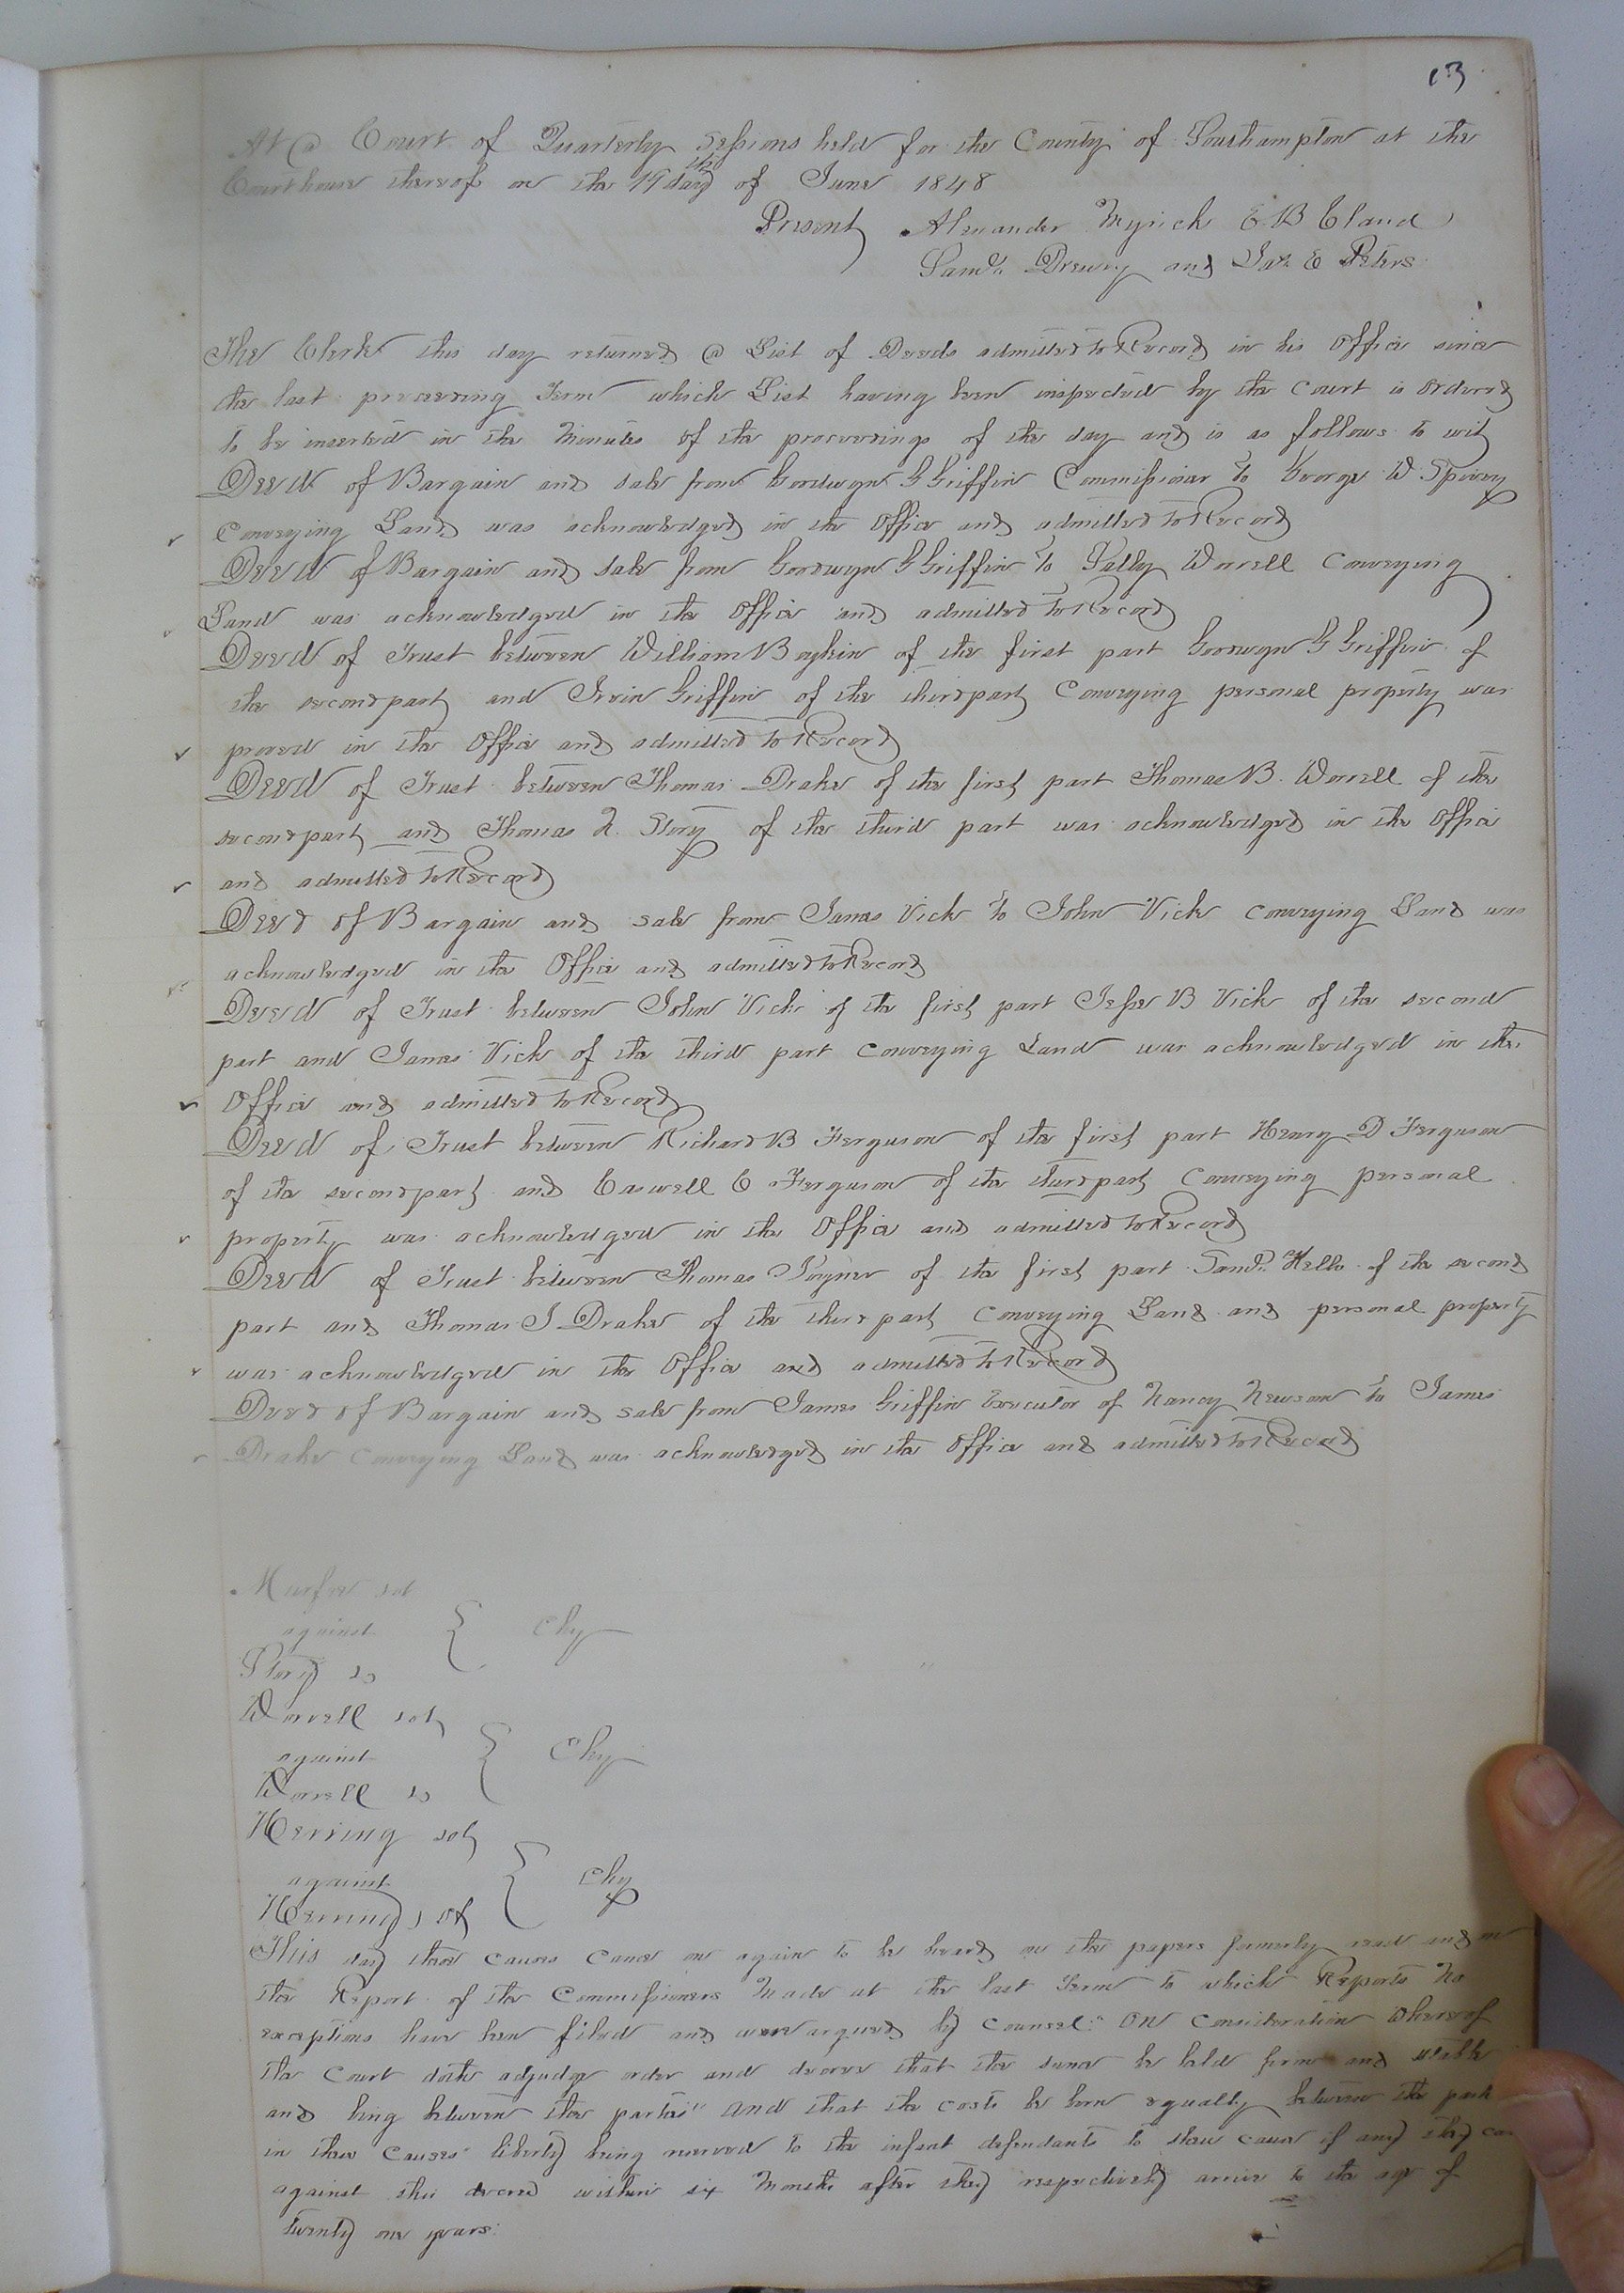 13
At a Court of Quarterly Sessions held for the County of Southampton at the
Courthouse thereof on the 19th day of June 1848
Present Alexander Myrick E B Eland
Saml. Drewry and Jas. E Peters
The Clerk this day returned a List of Deeds admitted to Record in his Office since
the last preceeding Term which List having been inspected by the Court is ordered
to be inserted in the minutes of the proceedings of the day and is as follows to wit
Deed of Bargain and sale from Goodwyn G Griffin Commissioner to George W Spivey
Conveying Land was acknowledged in the Office and admitted to Record
Deed of Bargain and sale from Goodwyn G Griffin to Tally Worrell Conveying
Land was acknowledged in the Office and admitted to Record
Deed of Trust between William Boykin of the first part Goodwyn G Griffin of
the second part and Irvin Griffin of the third part Conveying personal property was
proved in the Office and admitted to Record
Deed of Trust between Thomas Drake of the first part Thomas B. Worrell of the
second part and Thomas Story of the third part was acknowledged in the Office
and admitted to Record
Deed of Bargain and sale from James Vick to John Vick conveying Land was
acknowledged in the Office and admitted to Record
Deed of Trust between John Vick of the first part Jesse B Vick of the second
part and James Vick of the third part Conveying Land was acknowledged in the
Office and admitted to Record
Deed of Trust between Richard B Ferguson of the first part Henry D Ferguson
of the second part and Caswell C Ferguson of the third part Conveying personal
property was acknowledged in the Office and admitted to Record
Deed of Trust between Thomas Joyner of the first part Saml. Kello of the second
part and Thomas J Drake of the third part Conveying Land and personal property
was acknowledged in the Office and admitted to Record
Deed of Bargain and sale from James Griffin Executor of Nancy Newsom to James
Drake conveying Land was acknowledged in the Office and admitted to Record
Murfee
against Chy
Story
Worrell
against Chy
Worrell
Herring
against Chy
Herring
This day these causes came on again to be heard on the papers formerly read and on
the Report of the Commissioners made at the last Term to which Reports no
exceptions have been filed and were argued by Counsel On Consideration whereof
the Court doth adjudge order and decree that the same be held firm and stable
and being between the parties and that the costs be born equally between the parti
in these Causes liberty being reserved to the infant defendants to shew cause if any they can
against this decree within six months after they respectively arrive to the age of
twenty one years